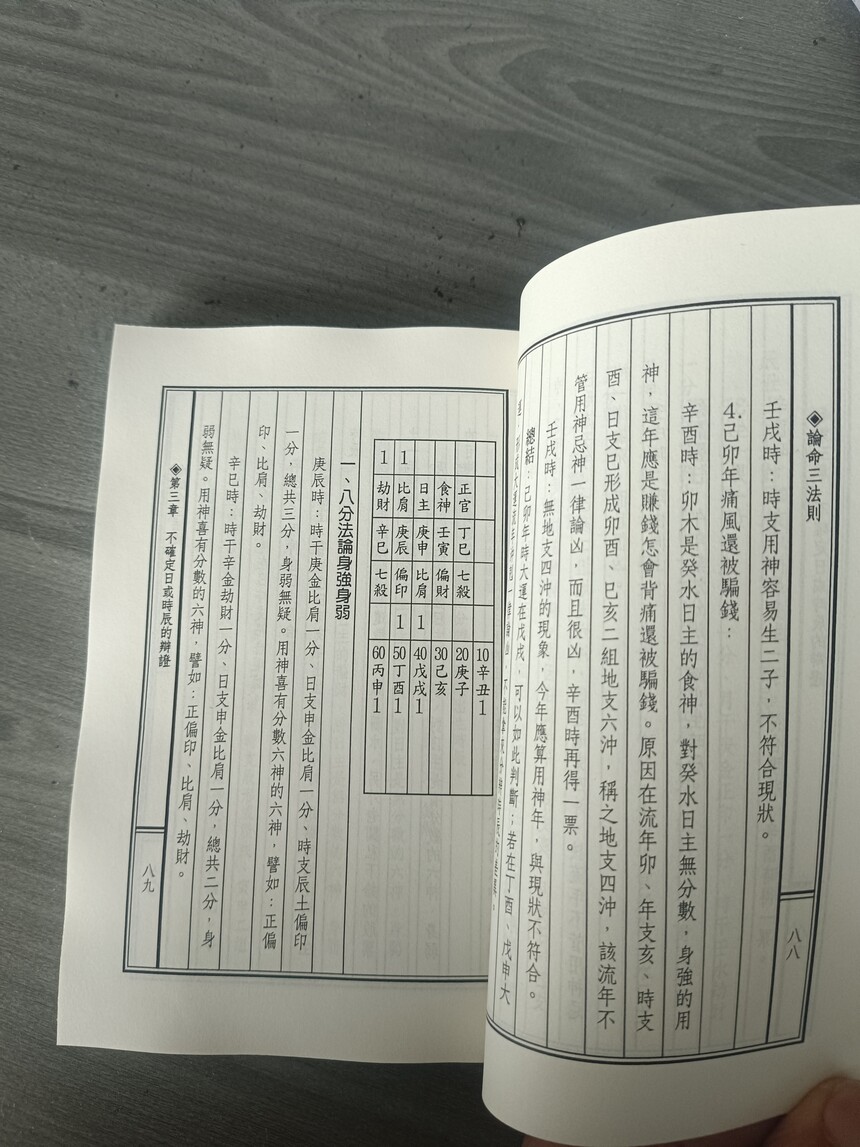 ◈論命三法則
八八
壬戌時：時支用神容易生二子，不符合現狀。
4.己卯年痛風還被騙錢：
辛酉時：卯木是癸水日主的食神，對癸水日主無分數，身強的用
神，這年應是賺錢怎會背痛還被騙錢。原因在流年卯、年支亥、時支
酉、日支巳形成卯酉、巳亥二組地支六沖，稱之地支四沖，該流年不
管用神忌神一律論凶，而且很凶，辛酉時再得一票。
壬戌時：無地支四沖的現象，今年應算用神年，與現狀不符合。
總結：己卯年時大運在戊戌，可以如此判斷；若在丁酉、戊申大
10辛丑1
正官 丁巳 七殺 20庚子
食神 壬寅 偏財 30己亥
日主 庚申 比肩 1 40戊戌1
1 比肩 庚辰 偏印 1 50丁酉1
1 劫財 辛巳 七殺 60丙申1
一、八分法論身強身弱
庚辰時：時干庚金比肩一分、日支申金比肩一分、時支辰土偏印
一分，總共三分，身弱無疑。用神喜有分數六神的六神，譬如：正偏
印、比肩、劫財。
辛巳時：時干辛金劫財一分、日支申金比肩一分，總共二分，身
弱無疑。用神喜有分數的六神，譬如：正偏印、比肩、劫財。
◈第三章 不確定日或時辰的辯證
八九